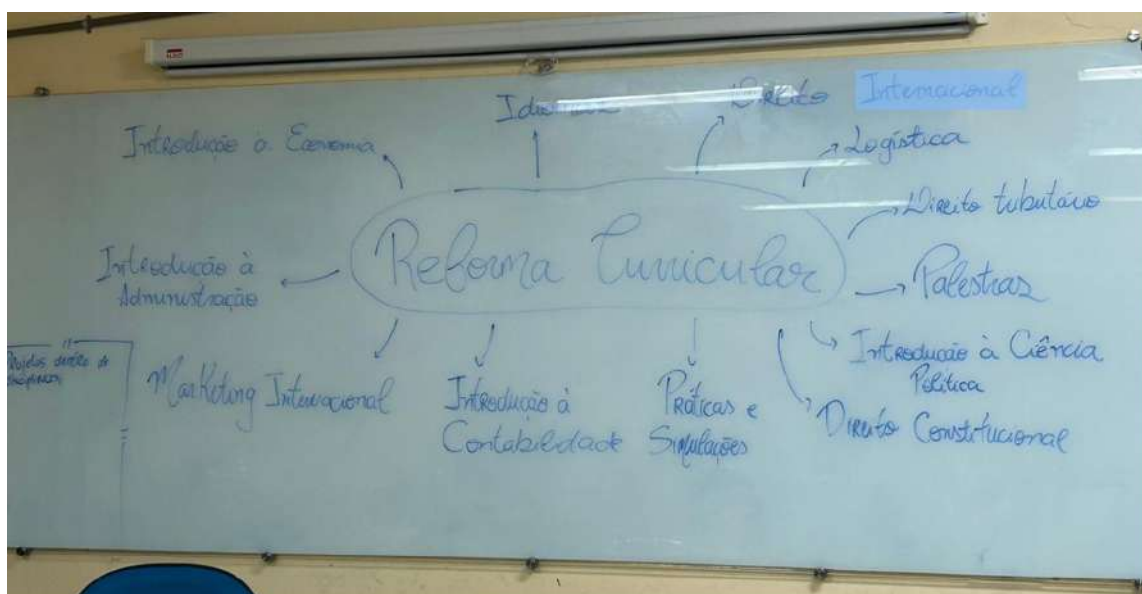 Introdução à Economia
Idiomas
Direito Internacional
Logística
Direito tributário
Reforma Curricular
Introdução à
Administração
Palestras
Introdução à Ciência
Política
Direito Constitucional
Práticas e
Simulações
Introdução à
Contabilidade
Marketing Internacional
Projetos dentro de